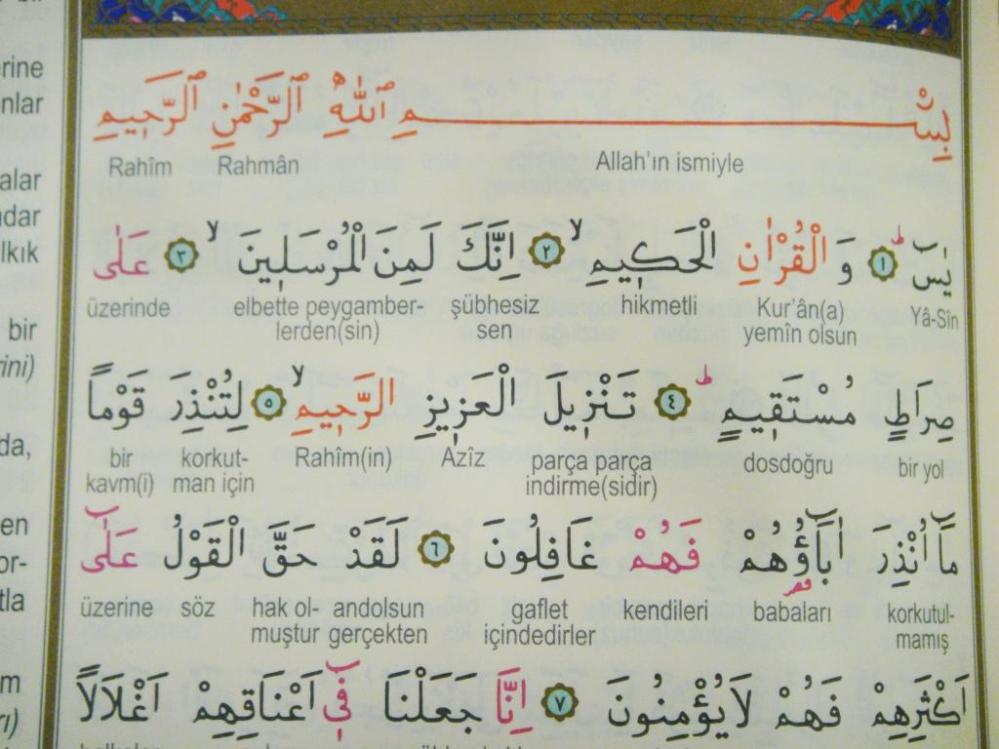 بِسْمِ اللّٰهِ الرَّحْمٰنِ الرَّحِيمِ
Allah'ın ismiyle Rahmân Rahîm
يٰسٓ ﴿١﴾ وَ الْقُرْاٰنِ الْحَكِيمِ ﴿٢﴾ اِنَّكَ لَمِنَ الْمُرْسَلِينَ ﴿٣﴾ عَلٰى
Yâ-Sîn Kur'ân(a) yemîn olsun hikmetli şübhesiz sen elbette peygamber-lerden(sin) üzerinde
صِرَاطٍ مُسْتَقِيمٍ ﴿٤﴾ تَنْزِيلَ الْعَزِيزِ الرَّحِيمِ ﴿٥﴾ لِتُنْذِرَ قَوْماً
bir yol dosdoğru parça parça indirme(sidir) Azîz Rahîm(in) korkut-man için bir kavm(i)
مَٓا اُنْذِرَ اٰبَٓاؤُهُمْ فَهُمْ غَافِلُونَ ﴿٦﴾ لَقَدْ حَقَّ الْقَوْلُ عَلٰٓى
korkutul-mamış babaları kendileri gaflet içindedirler andolsun gerçekten hak ol-muştur söz üzerine
اَكْثَرِهِمْ فَهُمْ لَا يُؤْمِنُونَ ﴿٧﴾ اِنَّا جَعَلْنَا فِٓى اَعْنَاقِهِمْ اَغْلَالاً